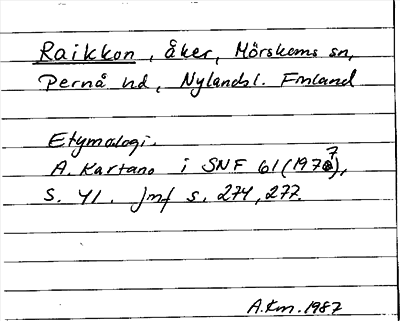 Raikkon, åker, Mörskoms sn,
Pernå hd, Nylands l. Finland
Etymologi.
A. Kartano i SNF 61 (1977),
S. 41. Jmf s. 274, 277.
A.Km. 1987